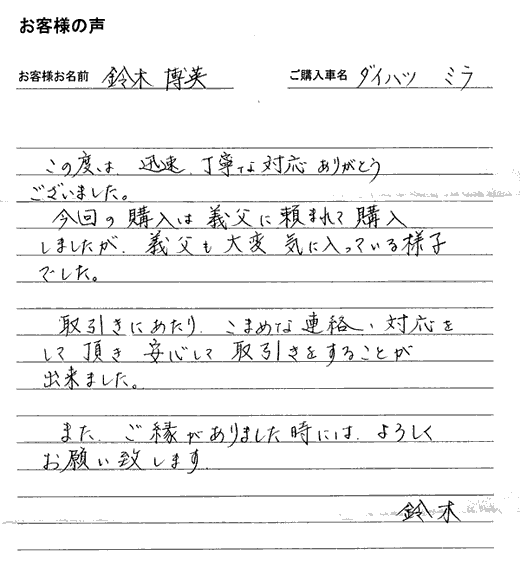 お客様の声
お客様お名前 鈴木 博英 ご購入車名 ダイハツ ミラ
この度は、迅速、丁寧な対応ありがとう
ございました。
今回の購入は義父に頼まれて購入
しましたが、義父も大変 気に入っている様子
でした。
取引きにあたり、こまめな連絡、対応を
して頂き 安心して 取引きをすることが
出来ました。
また、ご縁がありました時には、よろしく
お願い致します。
鈴木